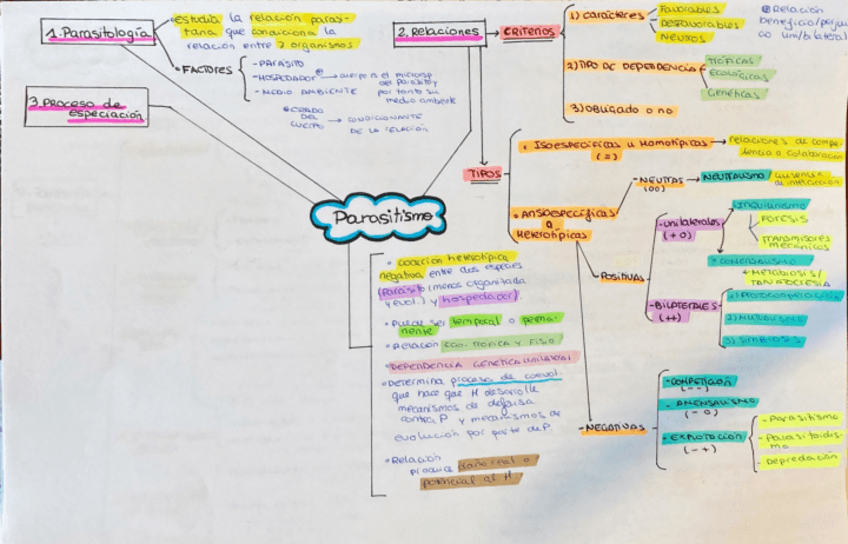 1. Parasitología
•estudia la relación paras-
itaria que condiciona la
relación entre 2 organismos
• FACTORES
- PARÁSITO
- HOSPEDADOR → cuerpo es el microesp
del parásito y
por tanto su
medio ambiente
- MEDIO AMBIENTE
ESTADO
DEL
CUERPO → CONDICIONANTE
DE LA RELACIÓN
2. Relaciones
CRITERIOS
1) caracteres
Favorables
DESFAVORABLES
NEUTROS
Relación
beneficio/perjui
cio uni/bilateral
2) TIPO DE DEPENDENCIA
TRÓFICAS
ECOLÓGICAS
GENÉTICAS
3) Obligado o no
TIPOS
• ISOESPECÍFICAS u HOMOTÍPICAS → relaciones de compe-
(=) tencia o colaboración
• ANISOESPECÍFICAS
o
HETEROTÍPICAS
- NEUTRAS → NEUTRALISMO / ausencia
(00) de interacción
- POSITIVAS
- unilaterales
(+0)
INQUILINISMO
FORESIS
TRANSMISORES
MECÁNICOS
• COMENSALISMO
+ METABIOSIS/
TANATOCRESIA
- BILATERALES
(++)
1) PROTOCOOPERACIÓN
2) MUTUALISMO
3) SIMBIOSIS
- NEGATIVAS
- COMPETICIÓN
(--)
- AMENSALISMO
(-0)
- EXPLOTACIÓN
(-+)
- Parasitismo
- Parasitoidis-
mo
- Depredación
3. PROCESO DE
ESPECIACIÓN
Parasitismo
• coacción heterotípica
negativa entre dos especies
(parásito (menos organizada
y evol.) y hospedador).
• Puede ser temporal o perma-
nente
• Relación eco-trófica y fisio
• DEPENDENCIA GENÉTICA unilateral
• Determina proceso de coevol.
que hace que H desarrolle
mecanismos de defensa
contra P y mecanismos de
evolución por parte de P.
• Relación
produce daño real o
potencial al H